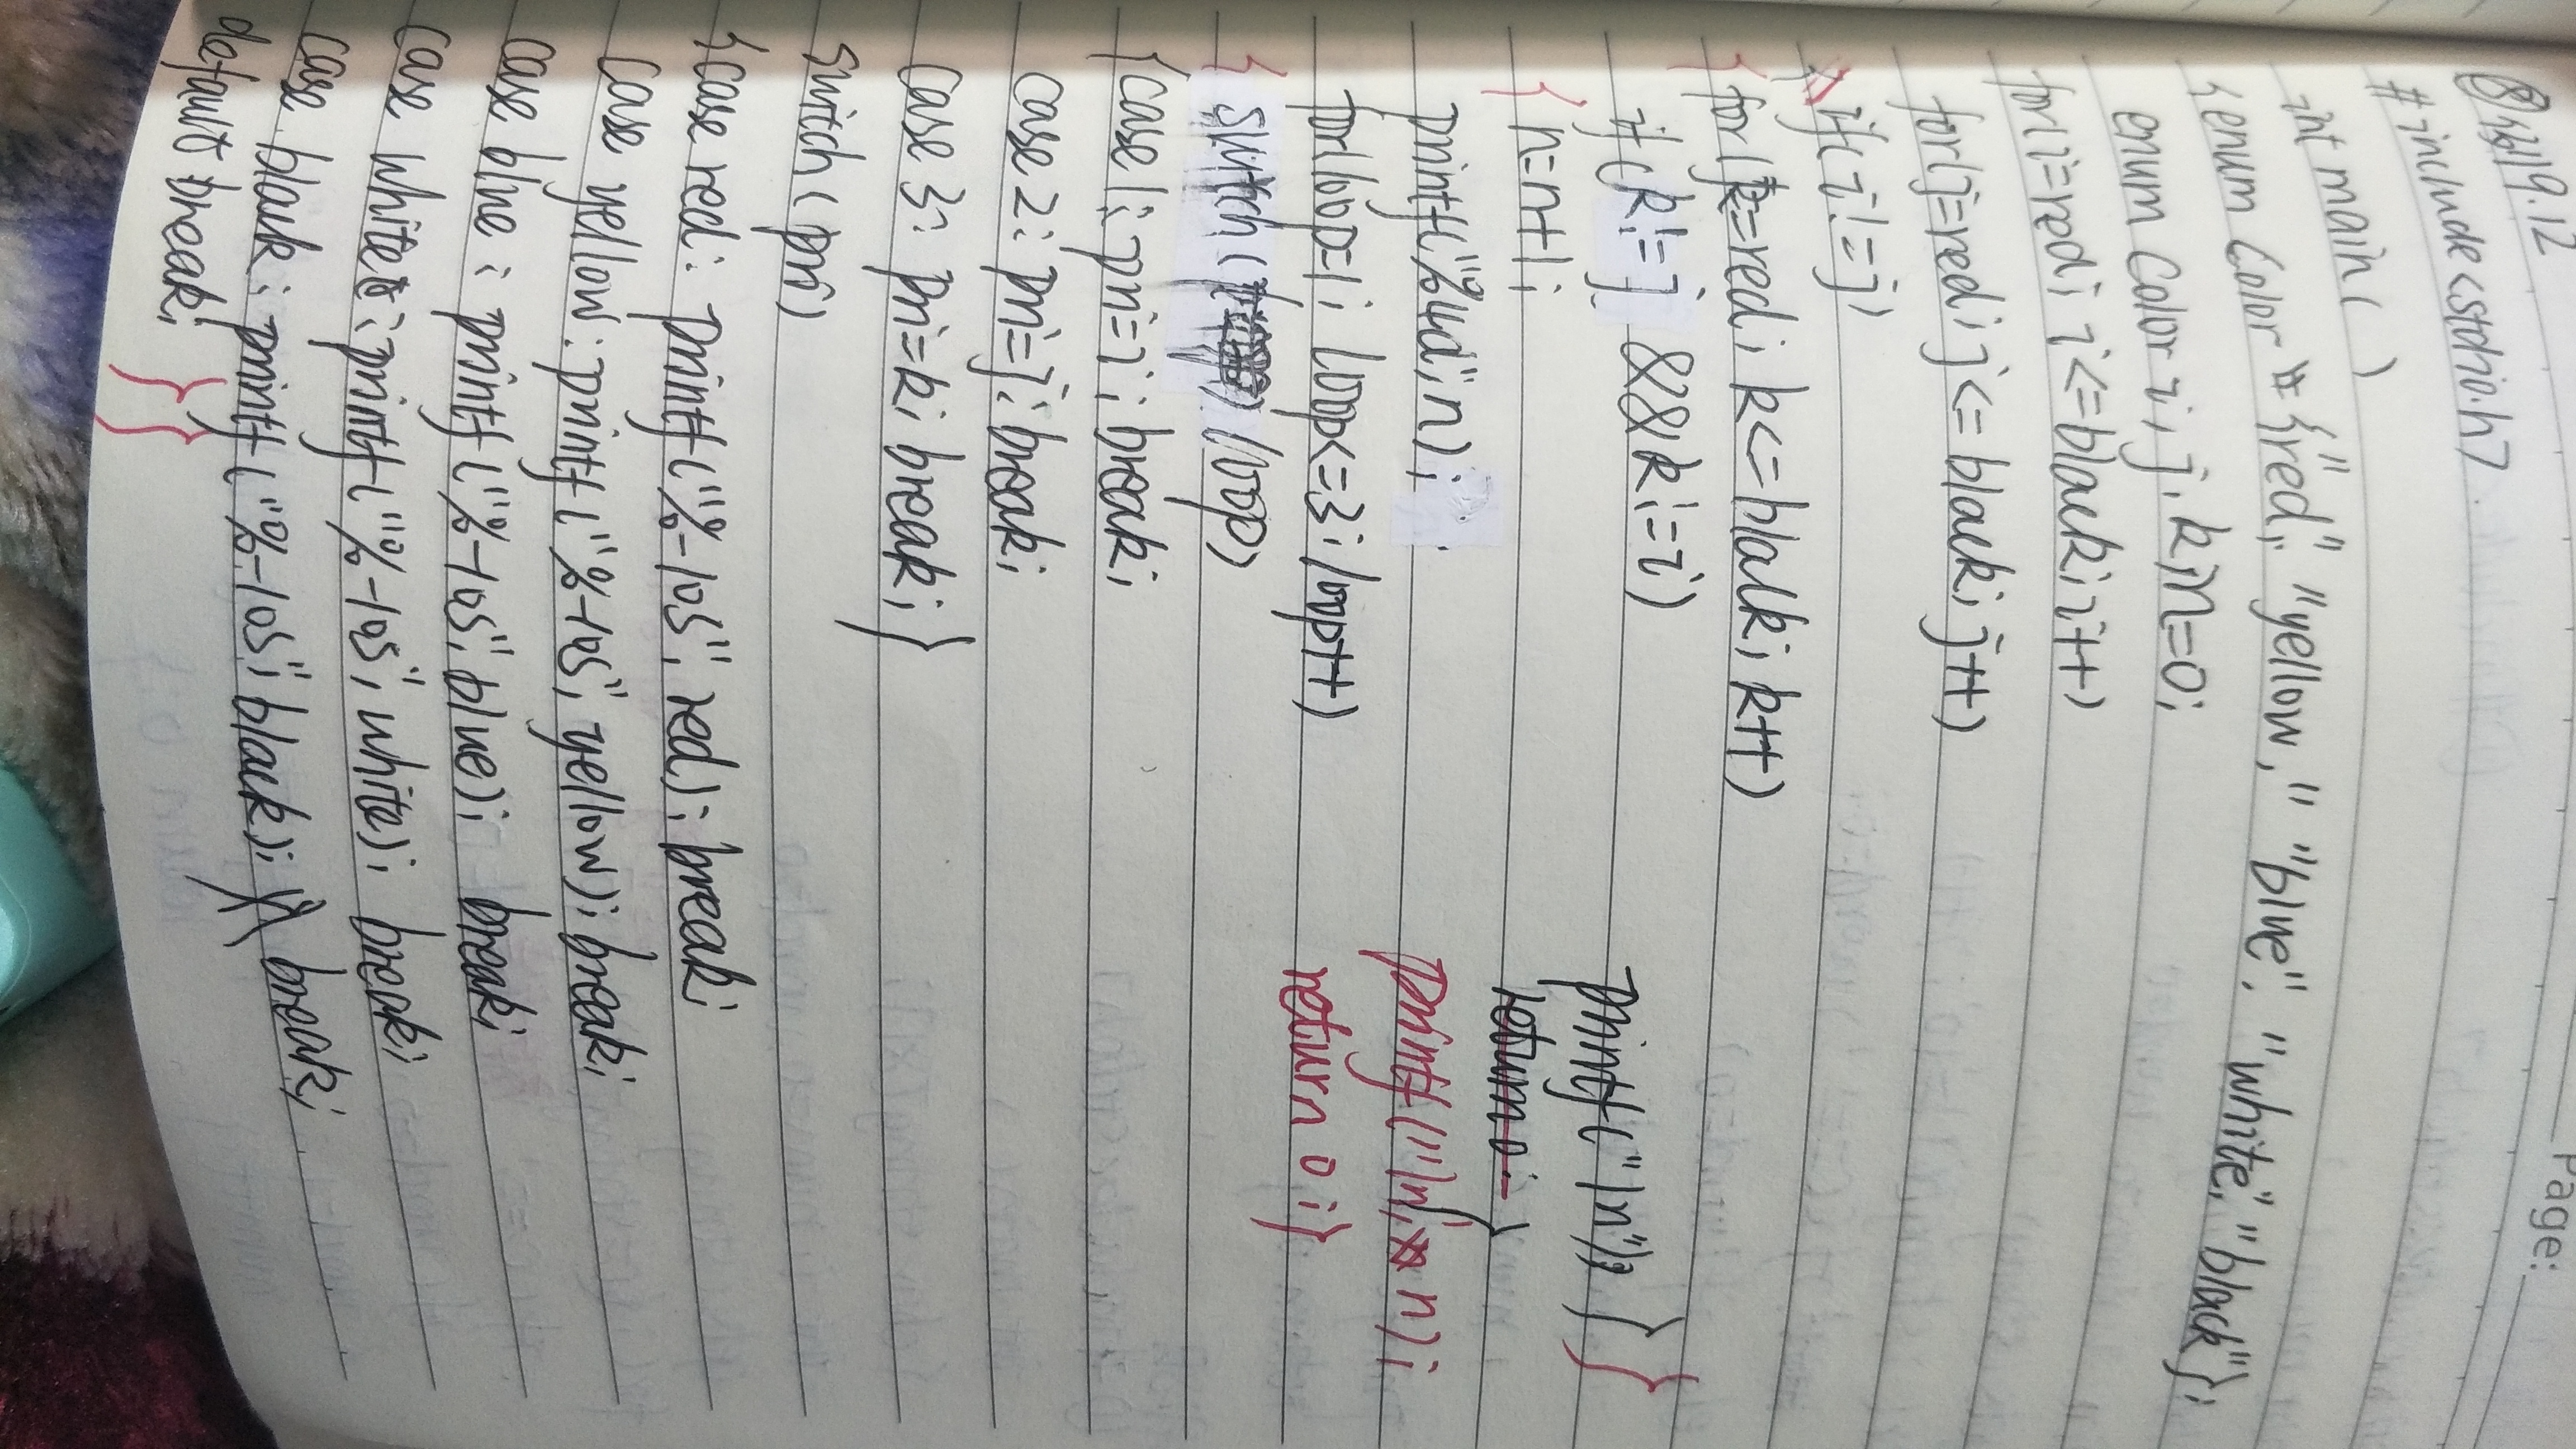 Page:
⑧例9.12
#include<stdio.h>
int main( )
{enum Color {"red", "yellow," "blue", "white", "black"};
enum Color i, j, k, n=0;
for(i=red; i<=black; i++)
for(j=red; j<=black; j++)
{if(i!=j)
{for(k=red; k<=black; k++)
if(k!=j &&k!=i)
{n=n+1;
printf("%4d",n);
for(loop=1; loop<=3; loop++)
{switch(loop)
{case 1: pri=i; break;
case 2: pri=j; break;
case 3: pri=k; break;}
switch(pri)
{case red: printf("%-10s", red); break;
case yellow: printf("%-10s", yellow); break;
case blue: printf("%-10s", blue); break;
case white: printf("%-10s", white); break;
case black: printf("%-10s", black); break;
default break; }}
printf("\n"); } }
return 0; }
printf("\n", n);
return 0;}